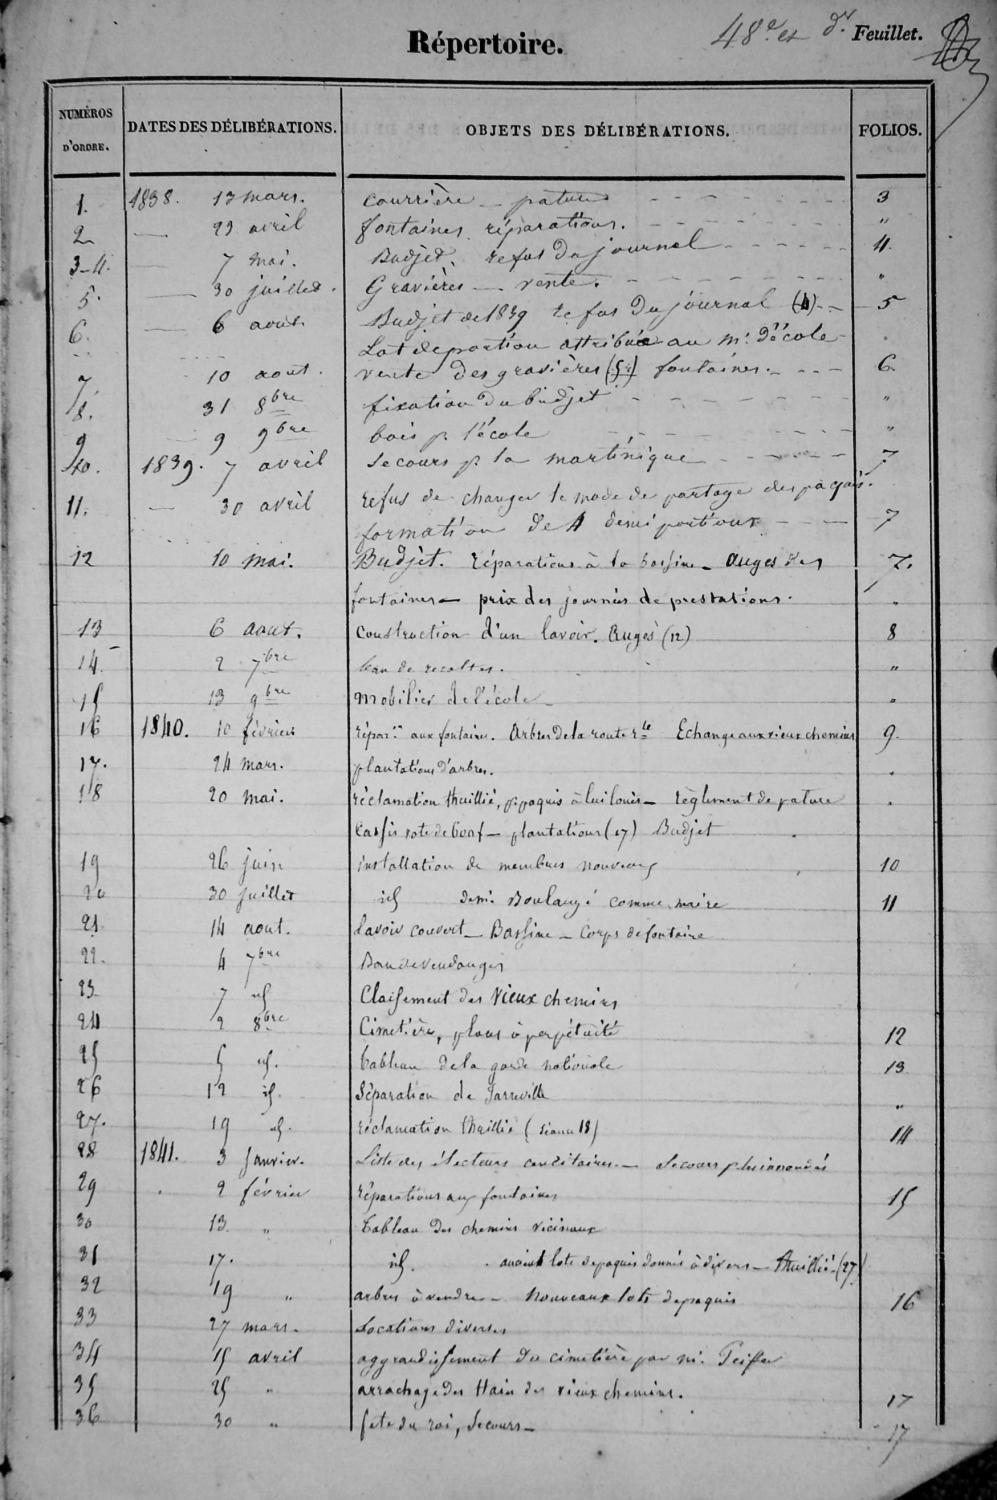 Répertoire.
48e et dr Feuillet.
NUMÉROS D'ORDRE. DATES DES DÉLIBÉRATIONS. OBJETS DES DÉLIBÉRATIONS. FOLIOS.
1. 1838. 13 mars. Courrière _ pature 3
2 — 23 avril fontaines réparations. "
3-4. — 7 mai. Budjet. refus du journal 4.
5. — 30 juillet. Gravières — vente. "
6. — 6 aout. Budjet de 1839 refus du journal (4) 5
Lot de portion attribué au m. d'école
7. 10 aout. vente des gravières (5) fontaines. 6
8. 31 8bre fixation du budjet "
9 9 9bre bois p. l'école "
10. 1839. 7 avril Secours p. la martinique 7
11. — 30 avril refus de changer le mode de partage des paquis.
formation de 4 demi portions 7
12 10 mai. Budjet. réparations à la bassine _ auges des 7.
fontaines — prix des journées de prestations.
13 6 aout. Construction d'un lavoir. Auges (12) 8
14. 2 7bre ban de recoltes. "
15 13 9bre mobilier de l'école _ "
16 1840. 10 février répar.ns aux fontaines. Arbres de la route r.le Echange aux vieux chemins 9.
17. 24 mars. plantations d'arbres.
18 20 mai. réclamation thuillié, p. paquis à lui loués _ règlement de pature
plantations (17) Budjet
19 26 juin installation de membres nouveaux 10
20 30 juillet id demi. Boulangé comme maire 11
21 14 aout. Lavoir couvert _ Bassine _ Corps de fontaine
22. 4 7bre Ban de vendanges
23 7 id Classement des vieux chemins
24 2 8bre Cimetière, places à perpétuité 12
25 5 id. tableau de la garde nationale 13
26 12 id. Séparation de Jarreville "
27. 19 id. réclamation thuillié (séance 18) 14
28 1841. 3 janvier. Liste des électeurs censitaires. — Secours p. les inondés
29 2 février réparations aux fontaines 15
30 13 " tableau des chemins vicinaux
31 17. id. lots de paquis donnés à divers _ thuillié. (27)
32 19 " arbres à vendre _ nouveaux lots de paquis 16
33 27 mars. Locations diverses
34 15 avril aggrandissement du cimetière par m.
35 25 " arrachage des haies des vieux chemins. 17
36 30 " fete du roi, Secours _ 17